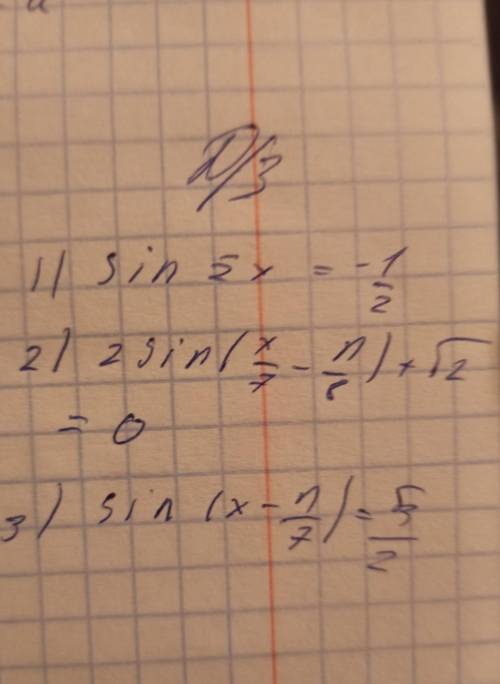 Д/З
1) sin 5x = -1/2
2) 2sin(x/7 - π/8) + √2
= 0
3) sin (x - π/7) = √3/2